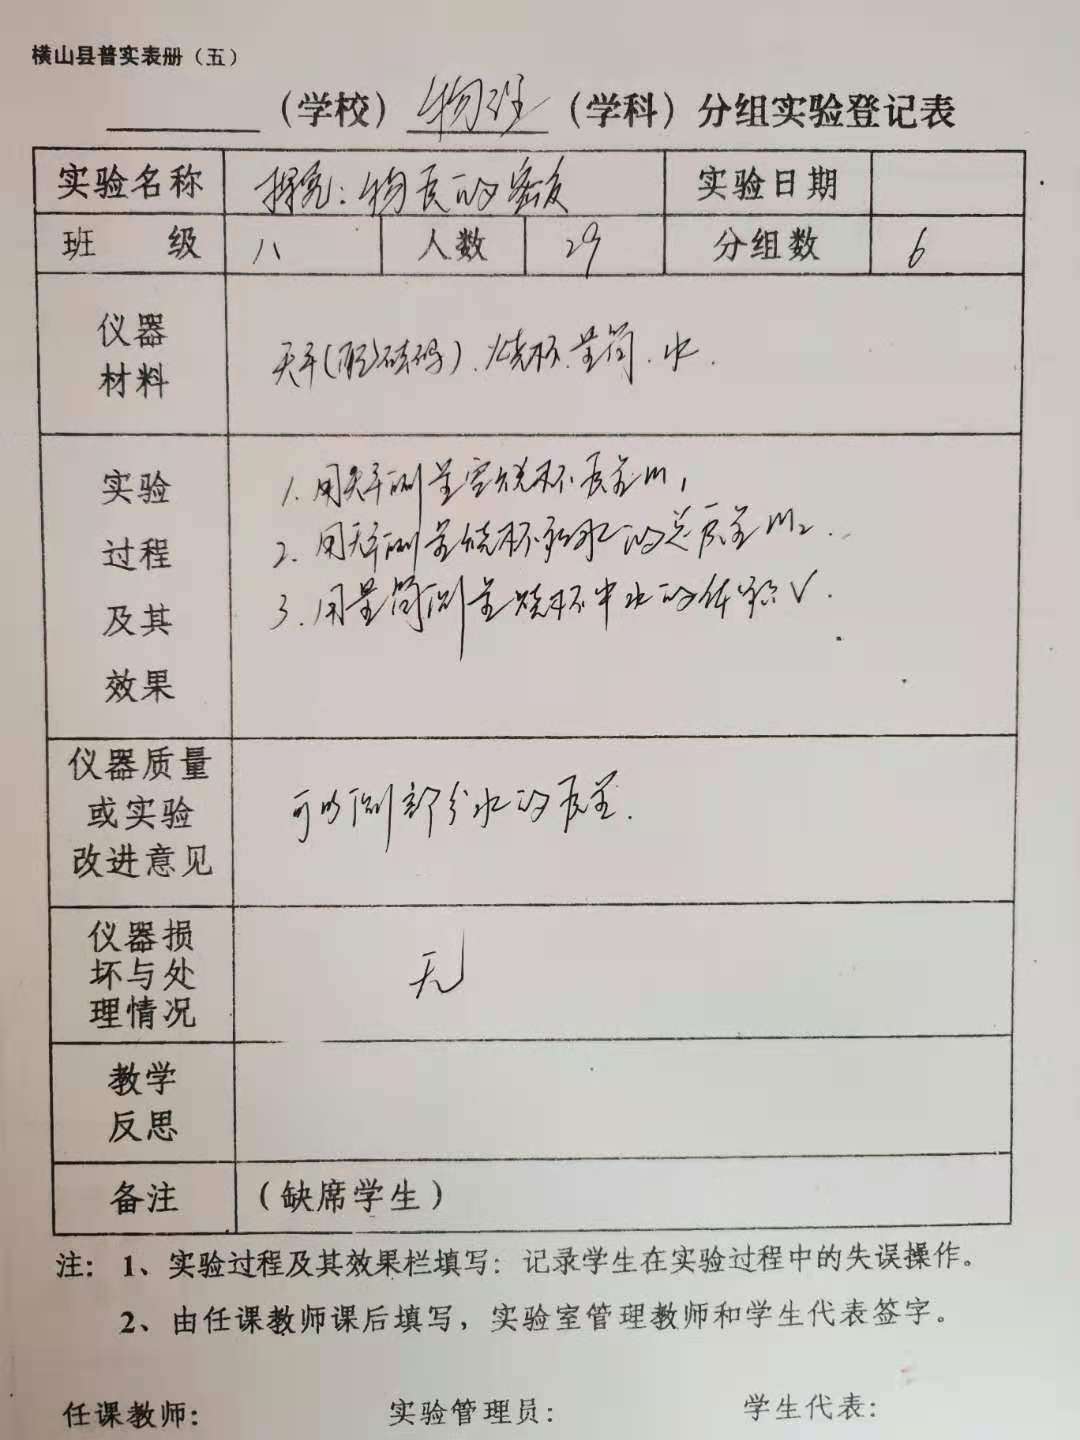 横山县普实表册（五）
（学校） 物理 （学科）分组实验登记表
实验名称 探究：物质的密度 实验日期
班 级 八 人数 29 分组数 6
仪器
材料
天平(配砝码)、烧杯、量筒、水.
实验
过程
及其
效果
1. 用天平测量空烧杯质量m1
2. 用天平测量烧杯和水的总质量m2.
3. 用量筒测量烧杯中水的体积V.
仪器质量
或实验
改进意见
可以测部分水的质量.
仪器损
坏与处
理情况
无
教学
反思
备注 （缺席学生）
注： 1、实验过程及其效果栏填写：记录学生在实验过程中的失误操作。
2、由任课教师课后填写，实验室管理教师和学生代表签字。
任课教师： 实验管理员： 学生代表：